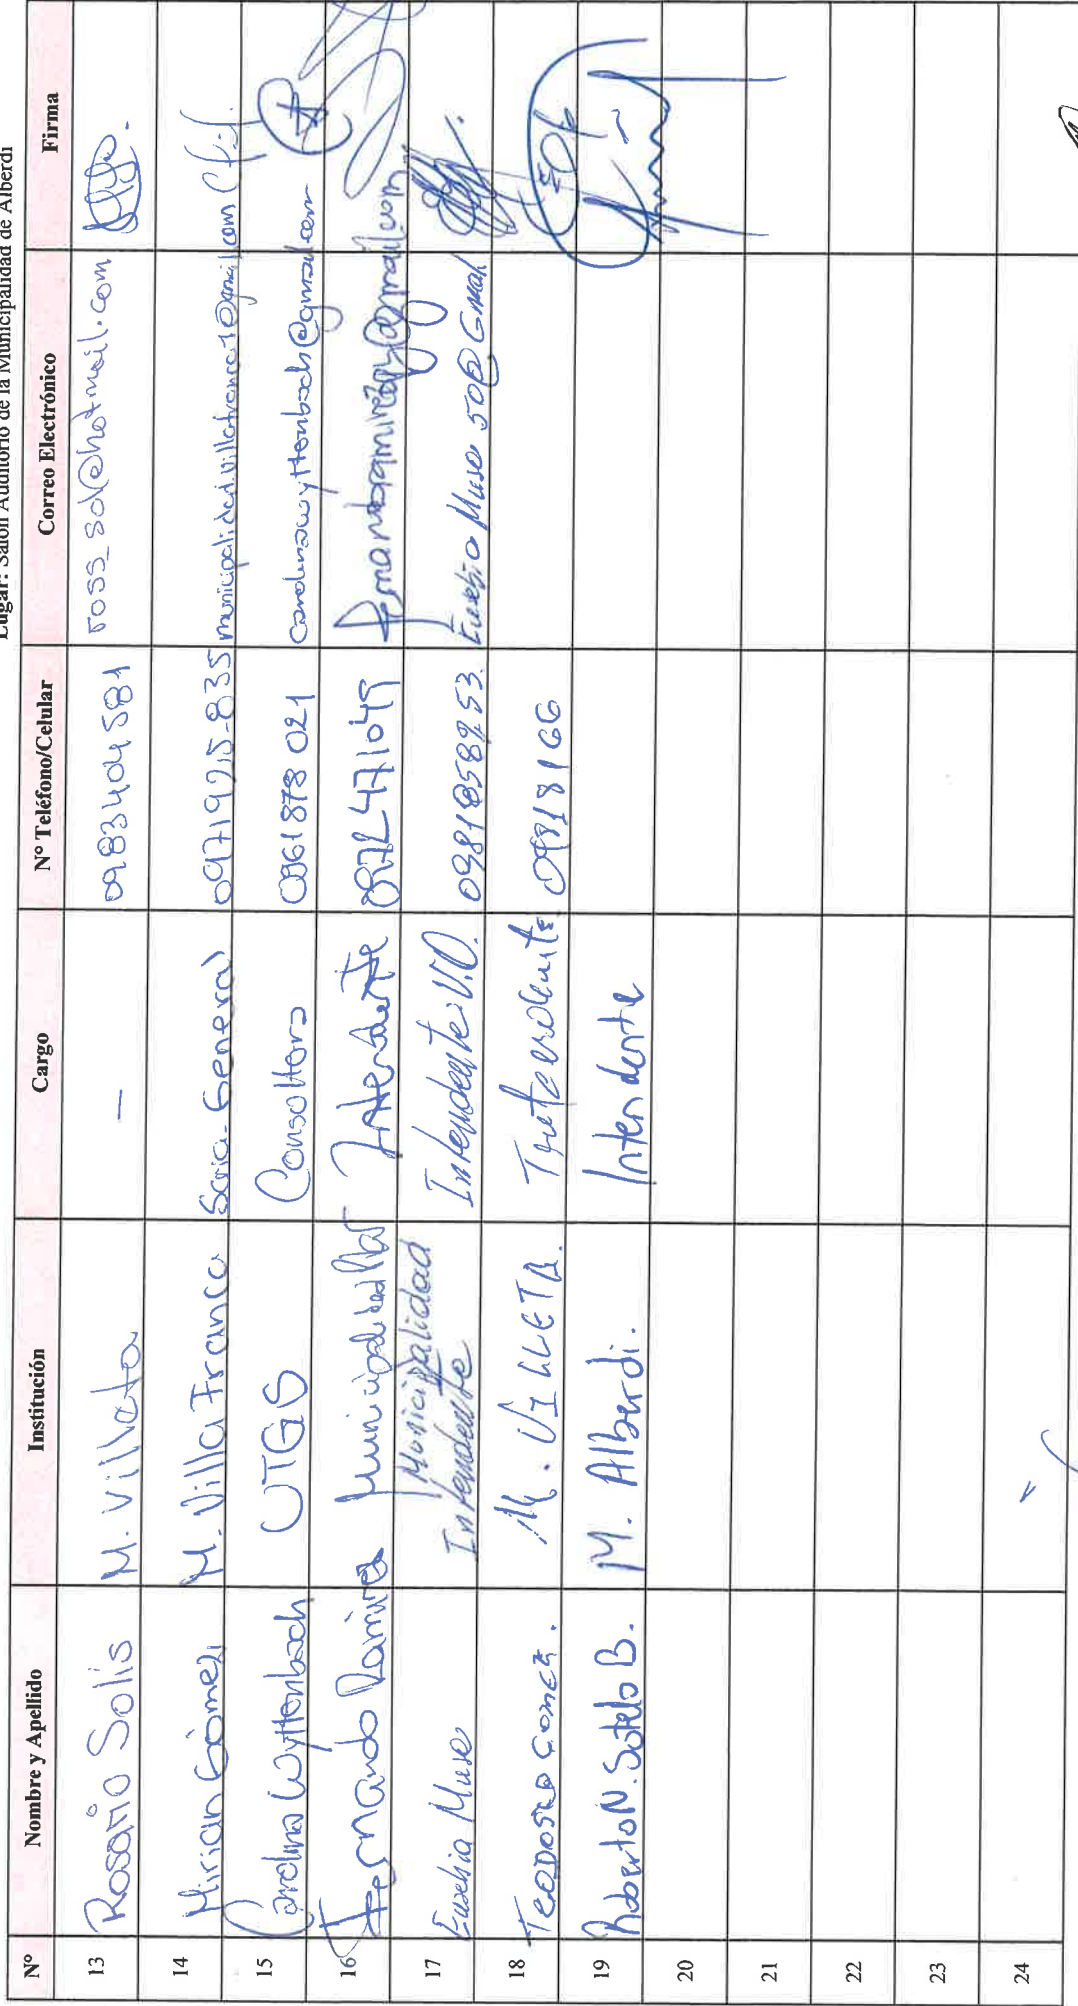 Lugar: Salón Auditorio de la Municipalidad de Alberdi
Nº Nombre y Apellido Institución Cargo Nº Teléfono/Celular Correo Electrónico Firma
13 Rosario Solis M. Villeta — 0983404581 ross_sol@hotmail.com
14 Mirian Gómez M. Villa Franca Scria. General 0971925-835 municipalidad.villafranca1@gmail.com
15 Carolina Wyttenbach UTGS Consultora 0961878 021 carolinawyttenbach@gmail.com
16 Fernando Ramirez Intendente
17 Eusebio Muso Municipalidad
Intendente Intendente V.O. Eusebio Muso 50@Gmail
18 Teodosio Gomez. M. VILLETA. 09818166
19 Roberto N. Sotelo B. M. Alberdi. Intendente
20
21
22
23
24